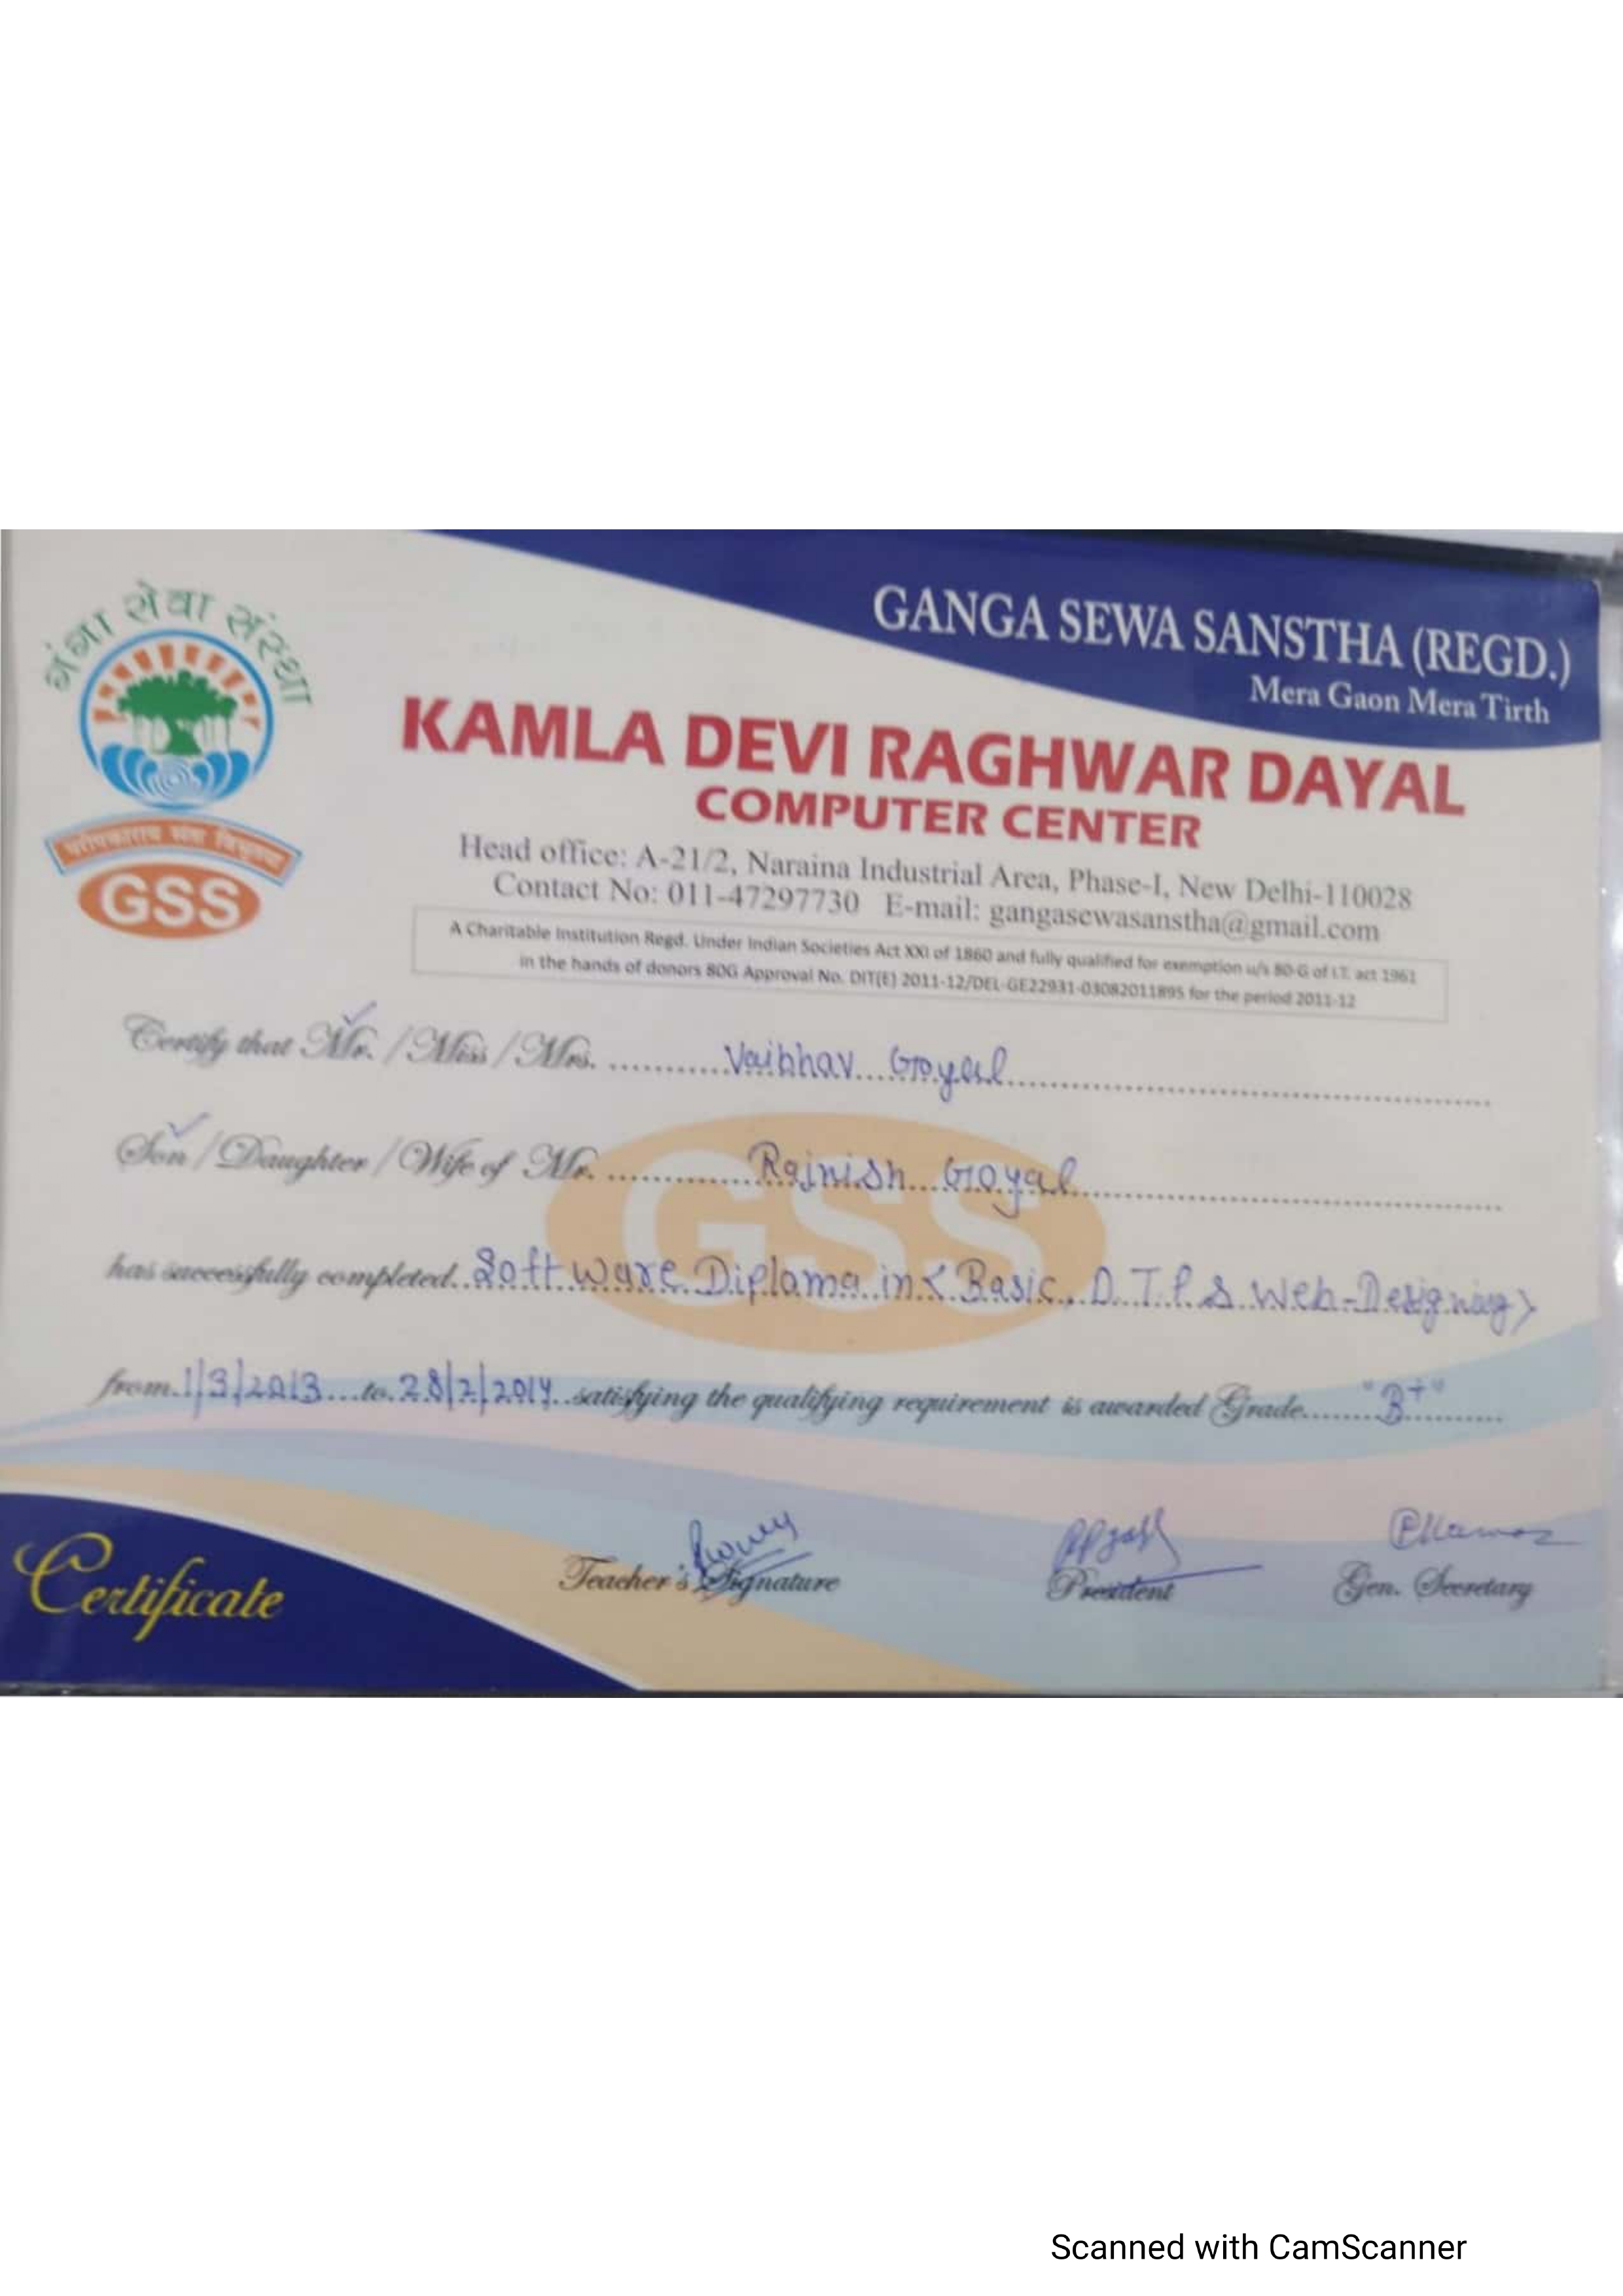 GANGA SEWA SANSTHA (REGD.)
Mera Gaon Mera Tirth
गंगा सेवा संस्था
परोपकाराय सतां विभूतयः
GSS
KAMLA DEVI RAGHWAR DAYAL
COMPUTER CENTER
Head office: A-21/2, Naraina Industrial Area, Phase-I, New Delhi-110028
Contact No: 011-47297730 E-mail: gangasewasanstha@gmail.com
A Charitable Institution Regd. Under Indian Societies Act XXI of 1860 and fully qualified for exemption u/s 80-G of I.T. act 1961
in the hands of donors 80G Approval No. DIT(E) 2011-12/DEL-GE22931-03082011895 for the period 2011-12
Certify that Mr. / Miss / Mrs. Vaibhav Goyal
Son / Daughter / Wife of Mr. Rajnish Goyal
GSS
has successfully completed Software Diploma in < Basic, D.T.P & Web-Designing >
from 1/3/2013 to 28/2/2014 satisfying the qualifying requirement is awarded Grade "B+"
Teacher's Signature President Gen. Secretary
Certificate
Scanned with CamScanner